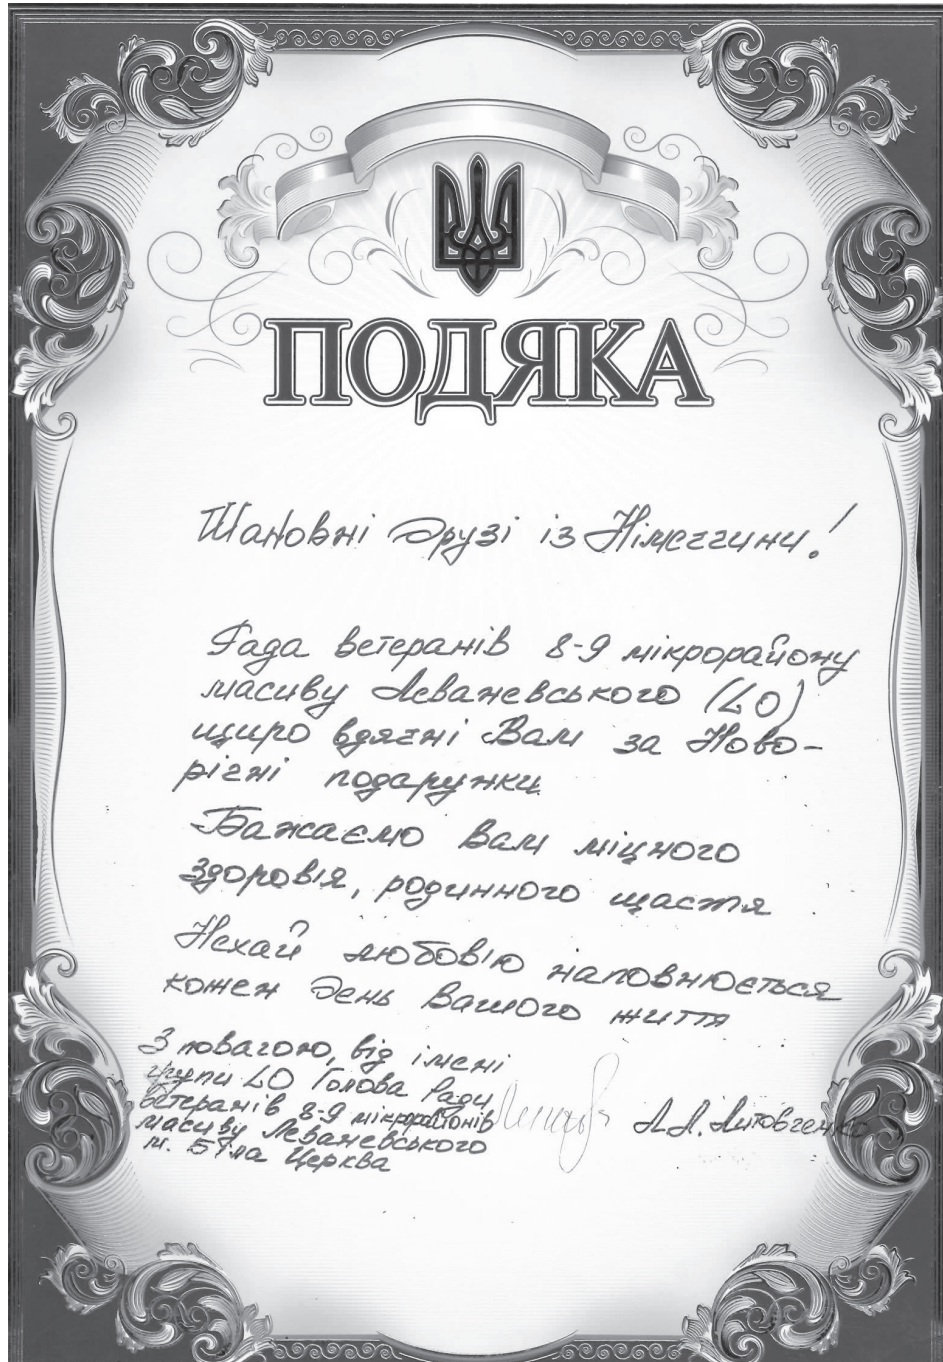 ПОДЯКА
Шановні друзі із Німеччини!
Рада ветеранів 8-9 мікрорайону
масиву Леваневського (LO)
щиро вдячні Вам за Ново-
річні подарунки
Бажаємо Вам міцного
здоровія, родинного щастя
Нехай любовію наповнюється
кожен день Вашого життя
З повагою, від імені
групи LO Голова Ради
ветеранів 8-9 мікрорайонів
масиву Леваневського
м. Біла Церква
Л.Л. Литовченко